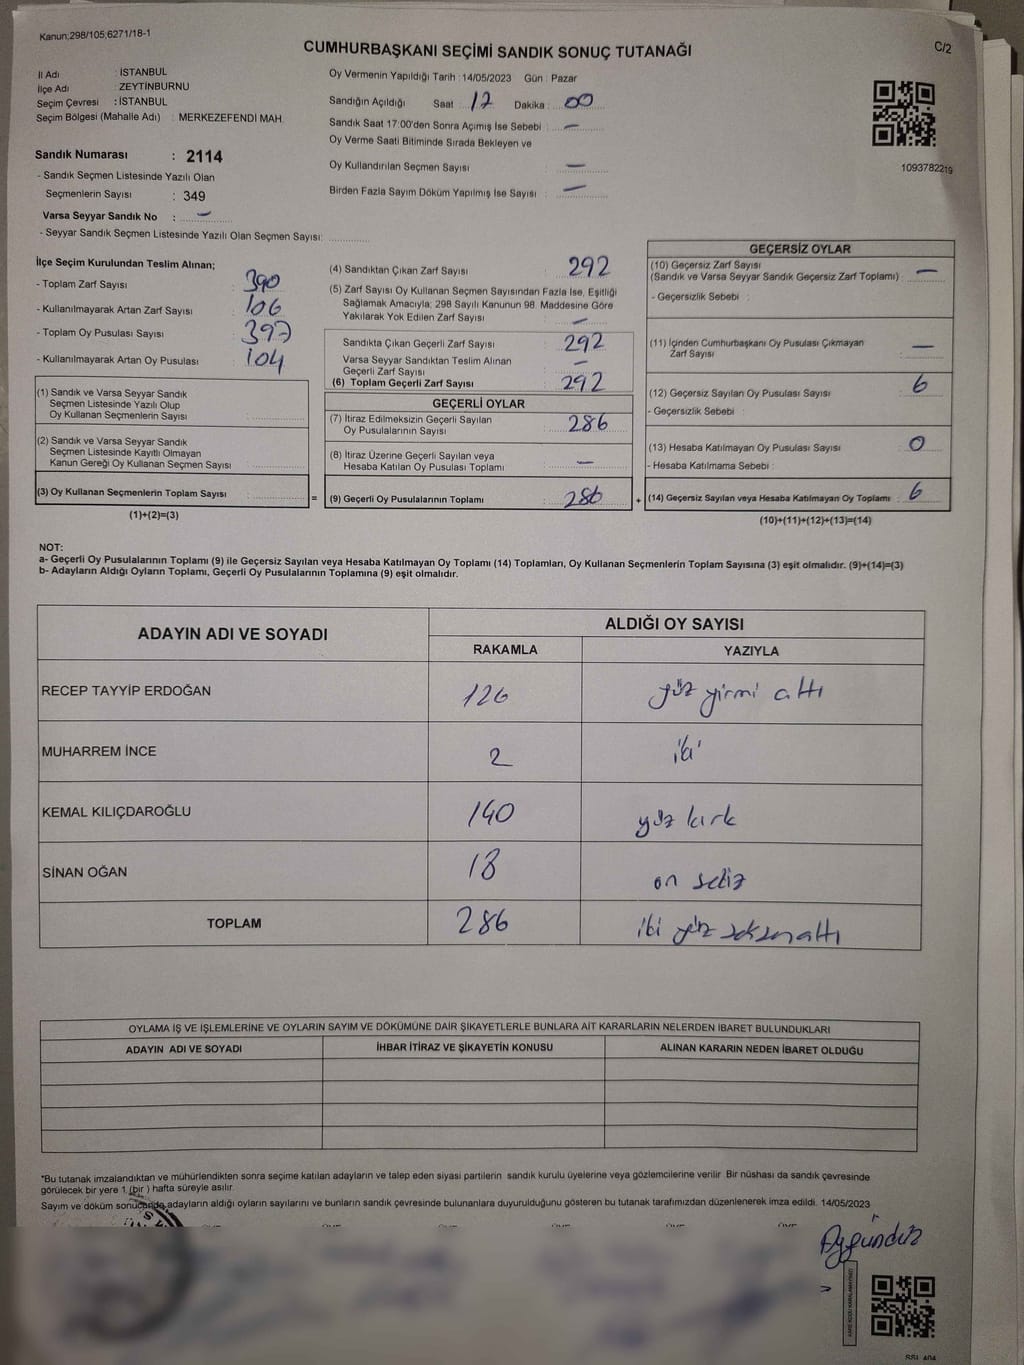 Kanun;298/105;6271/18-1
CUMHURBAŞKANI SEÇİMİ SANDIK SONUÇ TUTANAĞI
C/2
İl Adı : İSTANBUL
İlçe Adı : ZEYTİNBURNU
Seçim Çevresi : İSTANBUL
Seçim Bölgesi (Mahalle Adı) : MERKEZEFENDİ MAH.
Sandık Numarası : 2114
- Sandık Seçmen Listesinde Yazılı Olan
Seçmenlerin Sayısı : 349
Varsa Seyyar Sandık No : –
- Seyyar Sandık Seçmen Listesinde Yazılı Olan Seçmen Sayısı:
Oy Vermenin Yapıldığı Tarih : 14/05/2023 Gün : Pazar
Sandığın Açıldığı Saat : 17 Dakika : 00
Sandık Saat 17:00'den Sonra Açımış İse Sebebi : –
Oy Verme Saati Bitiminde Sırada Bekleyen ve
Oy Kullandırılan Seçmen Sayısı : –
Birden Fazla Sayım Döküm Yapılmış İse Sayısı : –
1093782219
İlçe Seçim Kurulundan Teslim Alınan;
- Toplam Zarf Sayısı : 390
- Kullanılmayarak Artan Zarf Sayısı : 106
- Toplam Oy Pusulası Sayısı : 397
- Kullanılmayarak Artan Oy Pusulası : 104
(1) Sandık ve Varsa Seyyar Sandık
Seçmen Listesinde Yazılı Olup
Oy Kullanan Seçmenlerin Sayısı :
(2) Sandık ve Varsa Seyyar Sandık
Seçmen Listesinde Kayıtlı Olmayan
Kanun Gereği Oy Kullanan Seçmen Sayısı :
(3) Oy Kullanan Seçmenlerin Toplam Sayısı :
(1)+(2)=(3)
(4) Sandıktan Çıkan Zarf Sayısı : 292
(5) Zarf Sayısı Oy Kullanan Seçmen Sayısından Fazla İse, Eşitliği
Sağlamak Amacıyla; 298 Sayılı Kanunun 98. Maddesine Göre
Yakılarak Yok Edilen Zarf Sayısı : –
Sandıkta Çıkan Geçerli Zarf Sayısı : 292
Varsa Seyyar Sandıktan Teslim Alınan
Geçerli Zarf Sayısı : –
(6) Toplam Geçerli Zarf Sayısı : 292
GEÇERLİ OYLAR
(7) İtiraz Edilmeksizin Geçerli Sayılan
Oy Pusulalarının Sayısı : 286
(8) İtiraz Üzerine Geçerli Sayılan veya
Hesaba Katılan Oy Pusulası Toplamı : –
= (9) Geçerli Oy Pusulalarının Toplamı : 286
GEÇERSİZ OYLAR
(10) Geçersiz Zarf Sayısı
(Sandık ve Varsa Seyyar Sandık Geçersiz Zarf Toplamı) : –
- Geçersizlik Sebebi :
(11) İçinden Cumhurbaşkanı Oy Pusulası Çıkmayan
Zarf Sayısı : –
(12) Geçersiz Sayılan Oy Pusulası Sayısı : 6
- Geçersizlik Sebebi :
(13) Hesaba Katılmayan Oy Pusulası Sayısı : 0
- Hesaba Katılmama Sebebi :
+ (14) Geçersiz Sayılan veya Hesaba Katılmayan Oy Toplamı : 6
(10)+(11)+(12)+(13)=(14)
NOT:
a- Geçerli Oy Pusulalarının Toplamı (9) ile Geçersiz Sayılan veya Hesaba Katılmayan Oy Toplamı (14) Toplamları, Oy Kullanan Seçmenlerin Toplam Sayısına (3) eşit olmalıdır. (9)+(14)=(3)
b- Adayların Aldığı Oyların Toplamı, Geçerli Oy Pusulalarının Toplamına (9) eşit olmalıdır.
ADAYIN ADI VE SOYADI
ALDIĞI OY SAYISI
RAKAMLA YAZIYLA
RECEP TAYYİP ERDOĞAN 126 yüz yirmi altı
MUHARREM İNCE 2 iki
KEMAL KILIÇDAROĞLU 140 yüz kırk
SİNAN OĞAN 18 on sekiz
TOPLAM 286 iki yüz seksen altı
OYLAMA İŞ VE İŞLEMLERİNE VE OYLARIN SAYIM VE DÖKÜMÜNE DAİR ŞİKAYETLERLE BUNLARA AİT KARARLARIN NELERDEN İBARET BULUNDUKLARI
ADAYIN ADI VE SOYADI İHBAR İTİRAZ VE ŞİKAYETİN KONUSU ALINAN KARARIN NEDEN İBARET OLDUĞU
*Bu tutanak imzalandıktan ve mühürlendikten sonra seçime katılan adayların ve talep eden siyasi partilerin sandık kurulu üyelerine veya gözlemcilerine verilir. Bir nüshası da sandık çevresinde
görülecek bir yere 1 (bir ) hafta süreyle asılır.
Sayım ve döküm sonucunda adayların aldığı oyların sayılarını ve bunların sandık çevresinde bulunanlara duyurulduğunu gösteren bu tutanak tarafımızdan düzenlenerek imza edildi. 14/05/2023